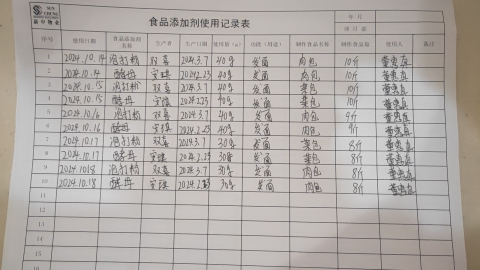 SUN CHUNG
新中物业
食品添加剂使用记录表
年 月
序号 使用日期 食品添加剂名称 生产者 生产日期 使用量(g) 功能(用途) 制作食品名称 制作食品量 使用人 备注
1 2024.10.14 泡打粉 双喜 2024.3.7 40g 发面 肉包 10斤
2 2024.10.14 酵母 安琪 2024.2.25 40g 发面 肉包 10斤
3 2024.10.15 泡打粉 双喜 2024.3.7 40g 发面 菜包 10斤
4 2024.10.15 酵母 安琪 2024.2.25 40g 发面 菜包 10斤
5 2024.10.16 泡打粉 双喜 2024.3.7 40g 发面 肉包 9斤
6 2024.10.16 酵母 安琪 2024.2.25 40g 发面 肉包 9斤
7 2024.10.17 泡打粉 双喜 2024.3.7 30g 发面 菜包 8斤
8 2024.10.17 酵母 安琪 2024.2.25 30g 发面 菜包 8斤
9 2024.10.18 泡打粉 双喜 2024.3.7 30g 发面 肉包 8斤
10 2024.10.18 酵母 安琪 30g 发面 肉包 8斤
11
12
13
14
15